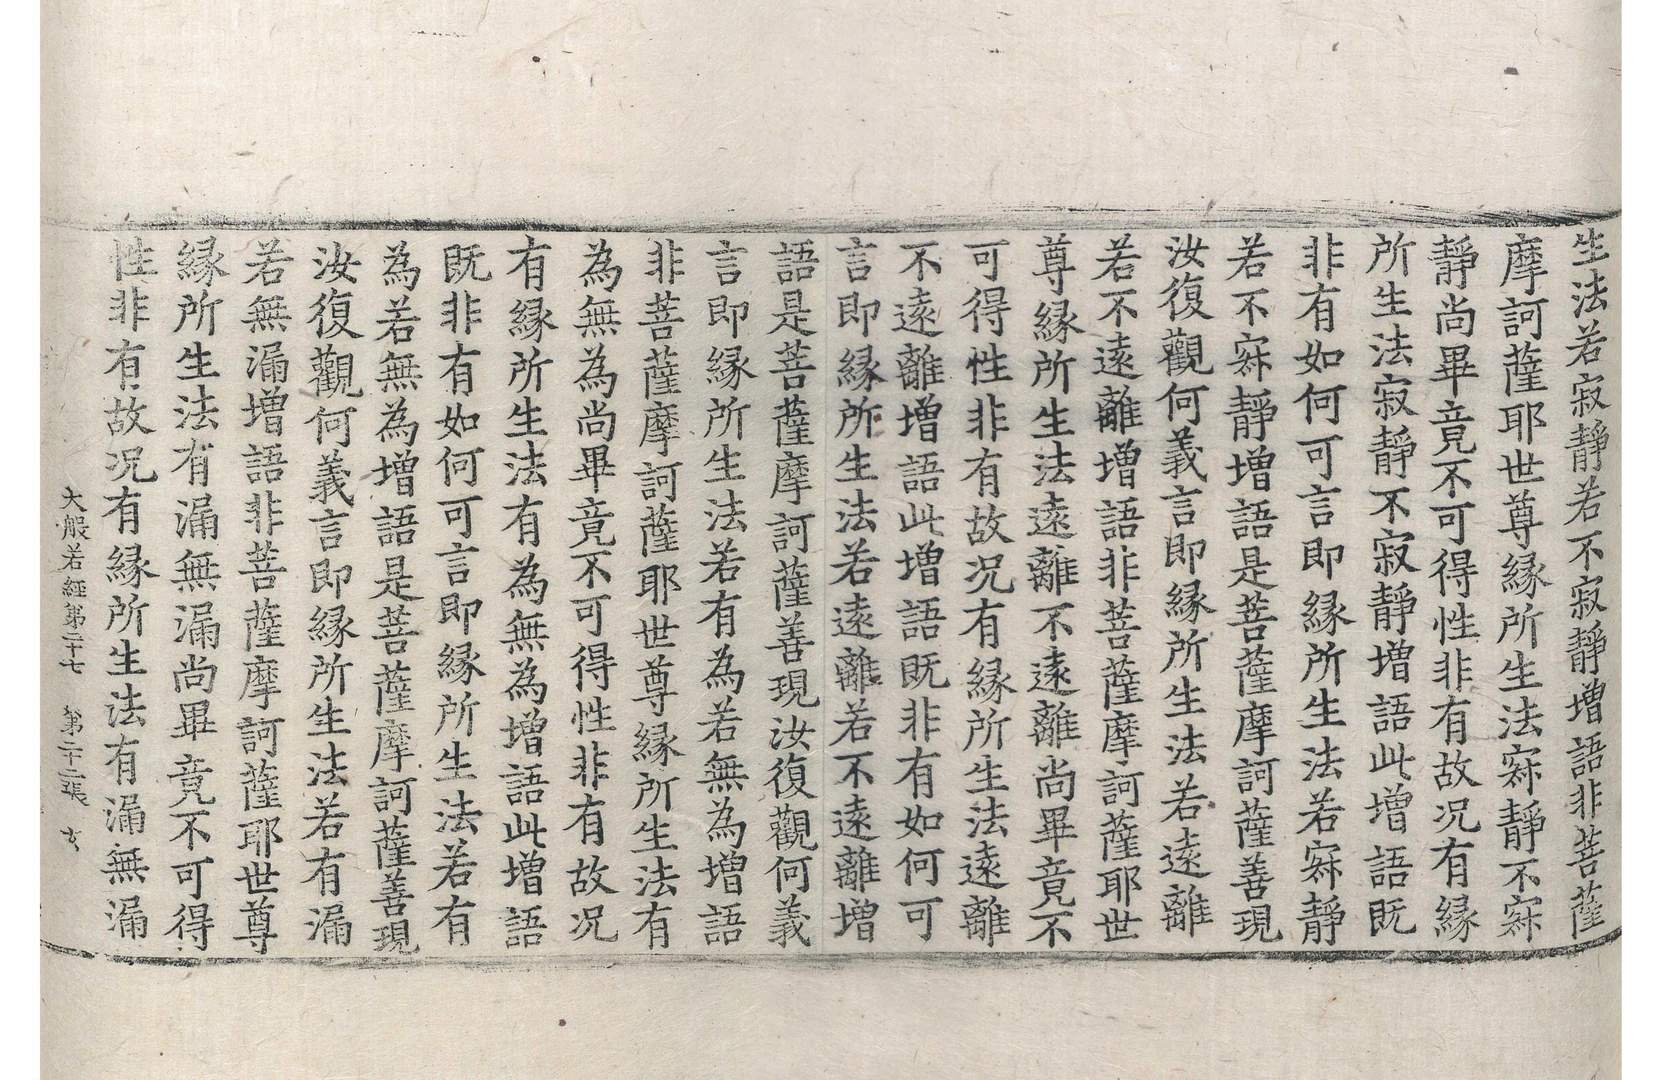 生法若寂靜若不寂靜增語非菩薩
摩訶薩耶世尊縁所生法寂靜不寂
靜尚畢竟不可得性非有故况有縁
所生法寂靜不寂靜增語此增語既
非有如何可言即縁所生法若寂靜
若不寂靜增語是菩薩摩訶薩善現
汝復觀何義言即縁所生法若遠離
若不遠離增語非菩薩摩訶薩耶世
尊縁所生法遠離不遠離尚畢竟不
可得性非有故况有縁所生法遠離
不遠離增語此增語既非有如何可
言即縁所生法若遠離若不遠離增
語是菩薩摩訶薩善現汝復觀何義
言即縁所生法若有為若無為增語
非菩薩摩訶薩耶世尊縁所生法有
為無為尚畢竟不可得性非有故况
有縁所生法有為無為增語此增語
既非有如何可言即縁所生法若有
為若無為增語是菩薩摩訶薩善現
汝復觀何義言即縁所生法若有漏
若無漏增語非菩薩摩訶薩耶世尊
縁所生法有漏無漏尚畢竟不可得
性非有故况有縁所生法有漏無漏
大般若經第二十七 第二十二張 玄